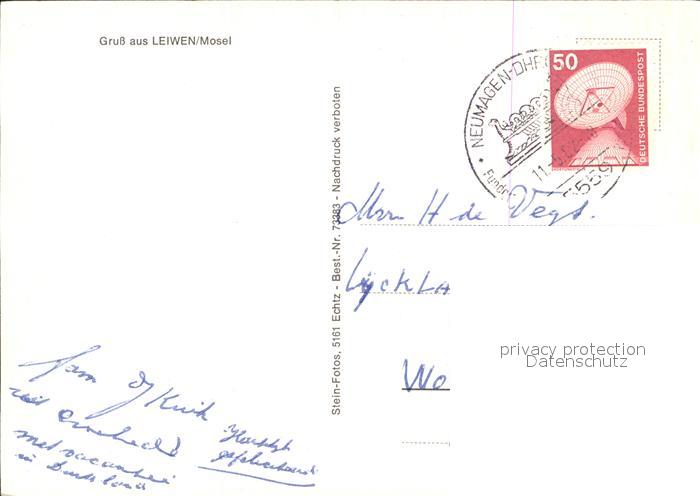 Gruß aus LEIWEN/Mosel
Stein-Fotos, 5161 Echtz - Best.-Nr. 73383 - Nachdruck verboten
NEUMAGEN-DHR
50
DEUTSCHE BUNDESPOST
559
H de Vegt.
Lyckla
Wo
privacy protection
Datenschutz
Fam Kuik
uit Enschede
met vacantie
in Duitsland